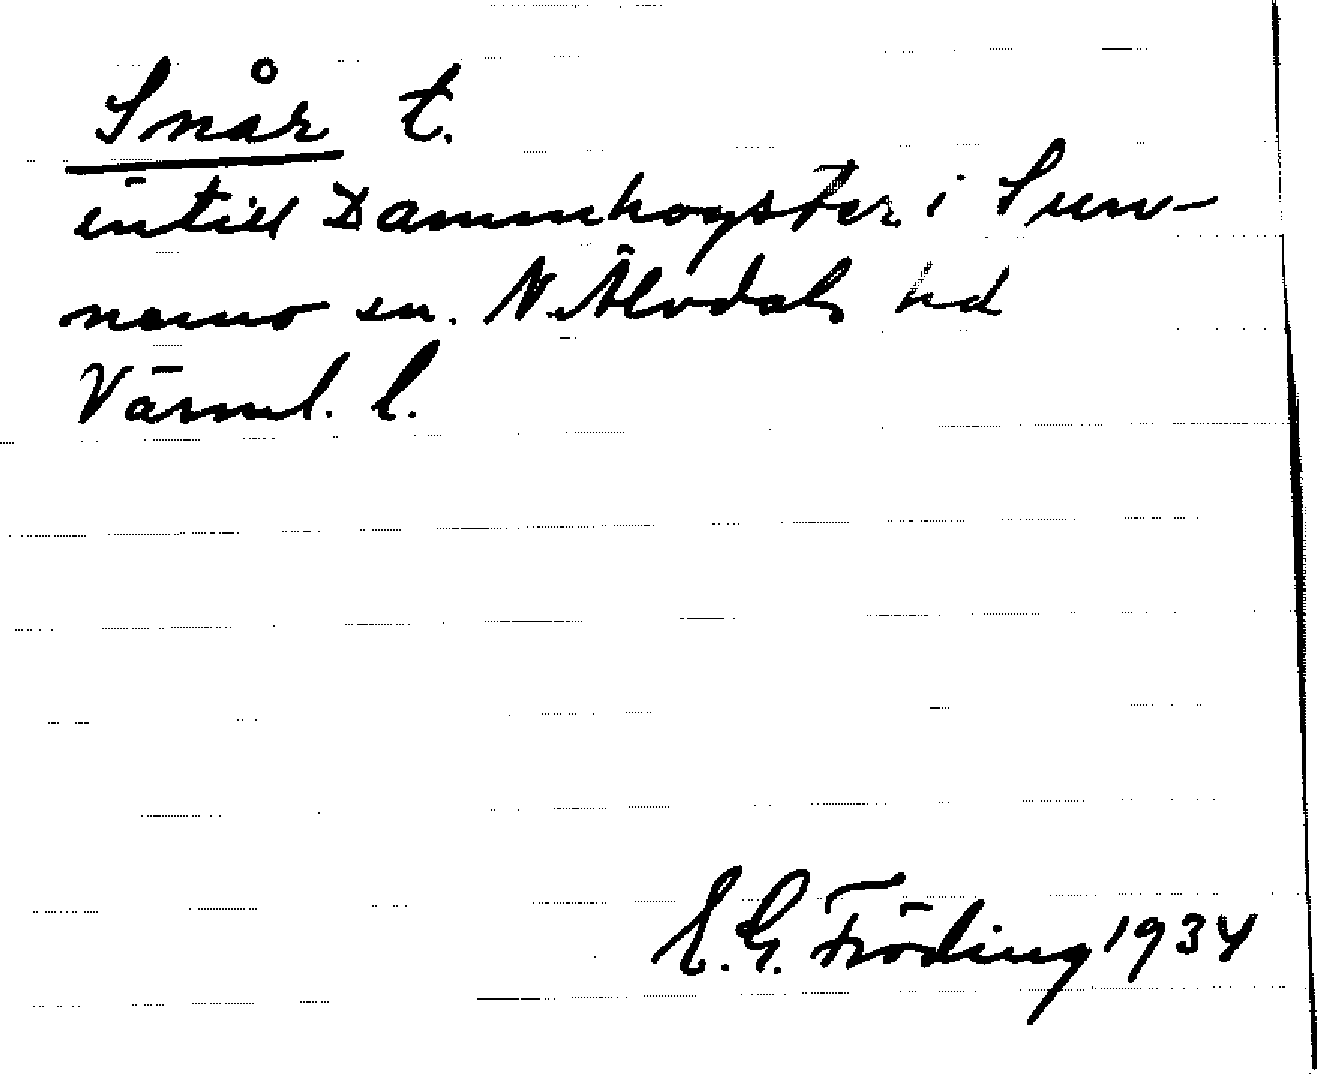 Snår t.
intill Dammhögster i Sun-
nemo sn. N. Älvdals hd
Värml. l.
E. G. Fröding 1934